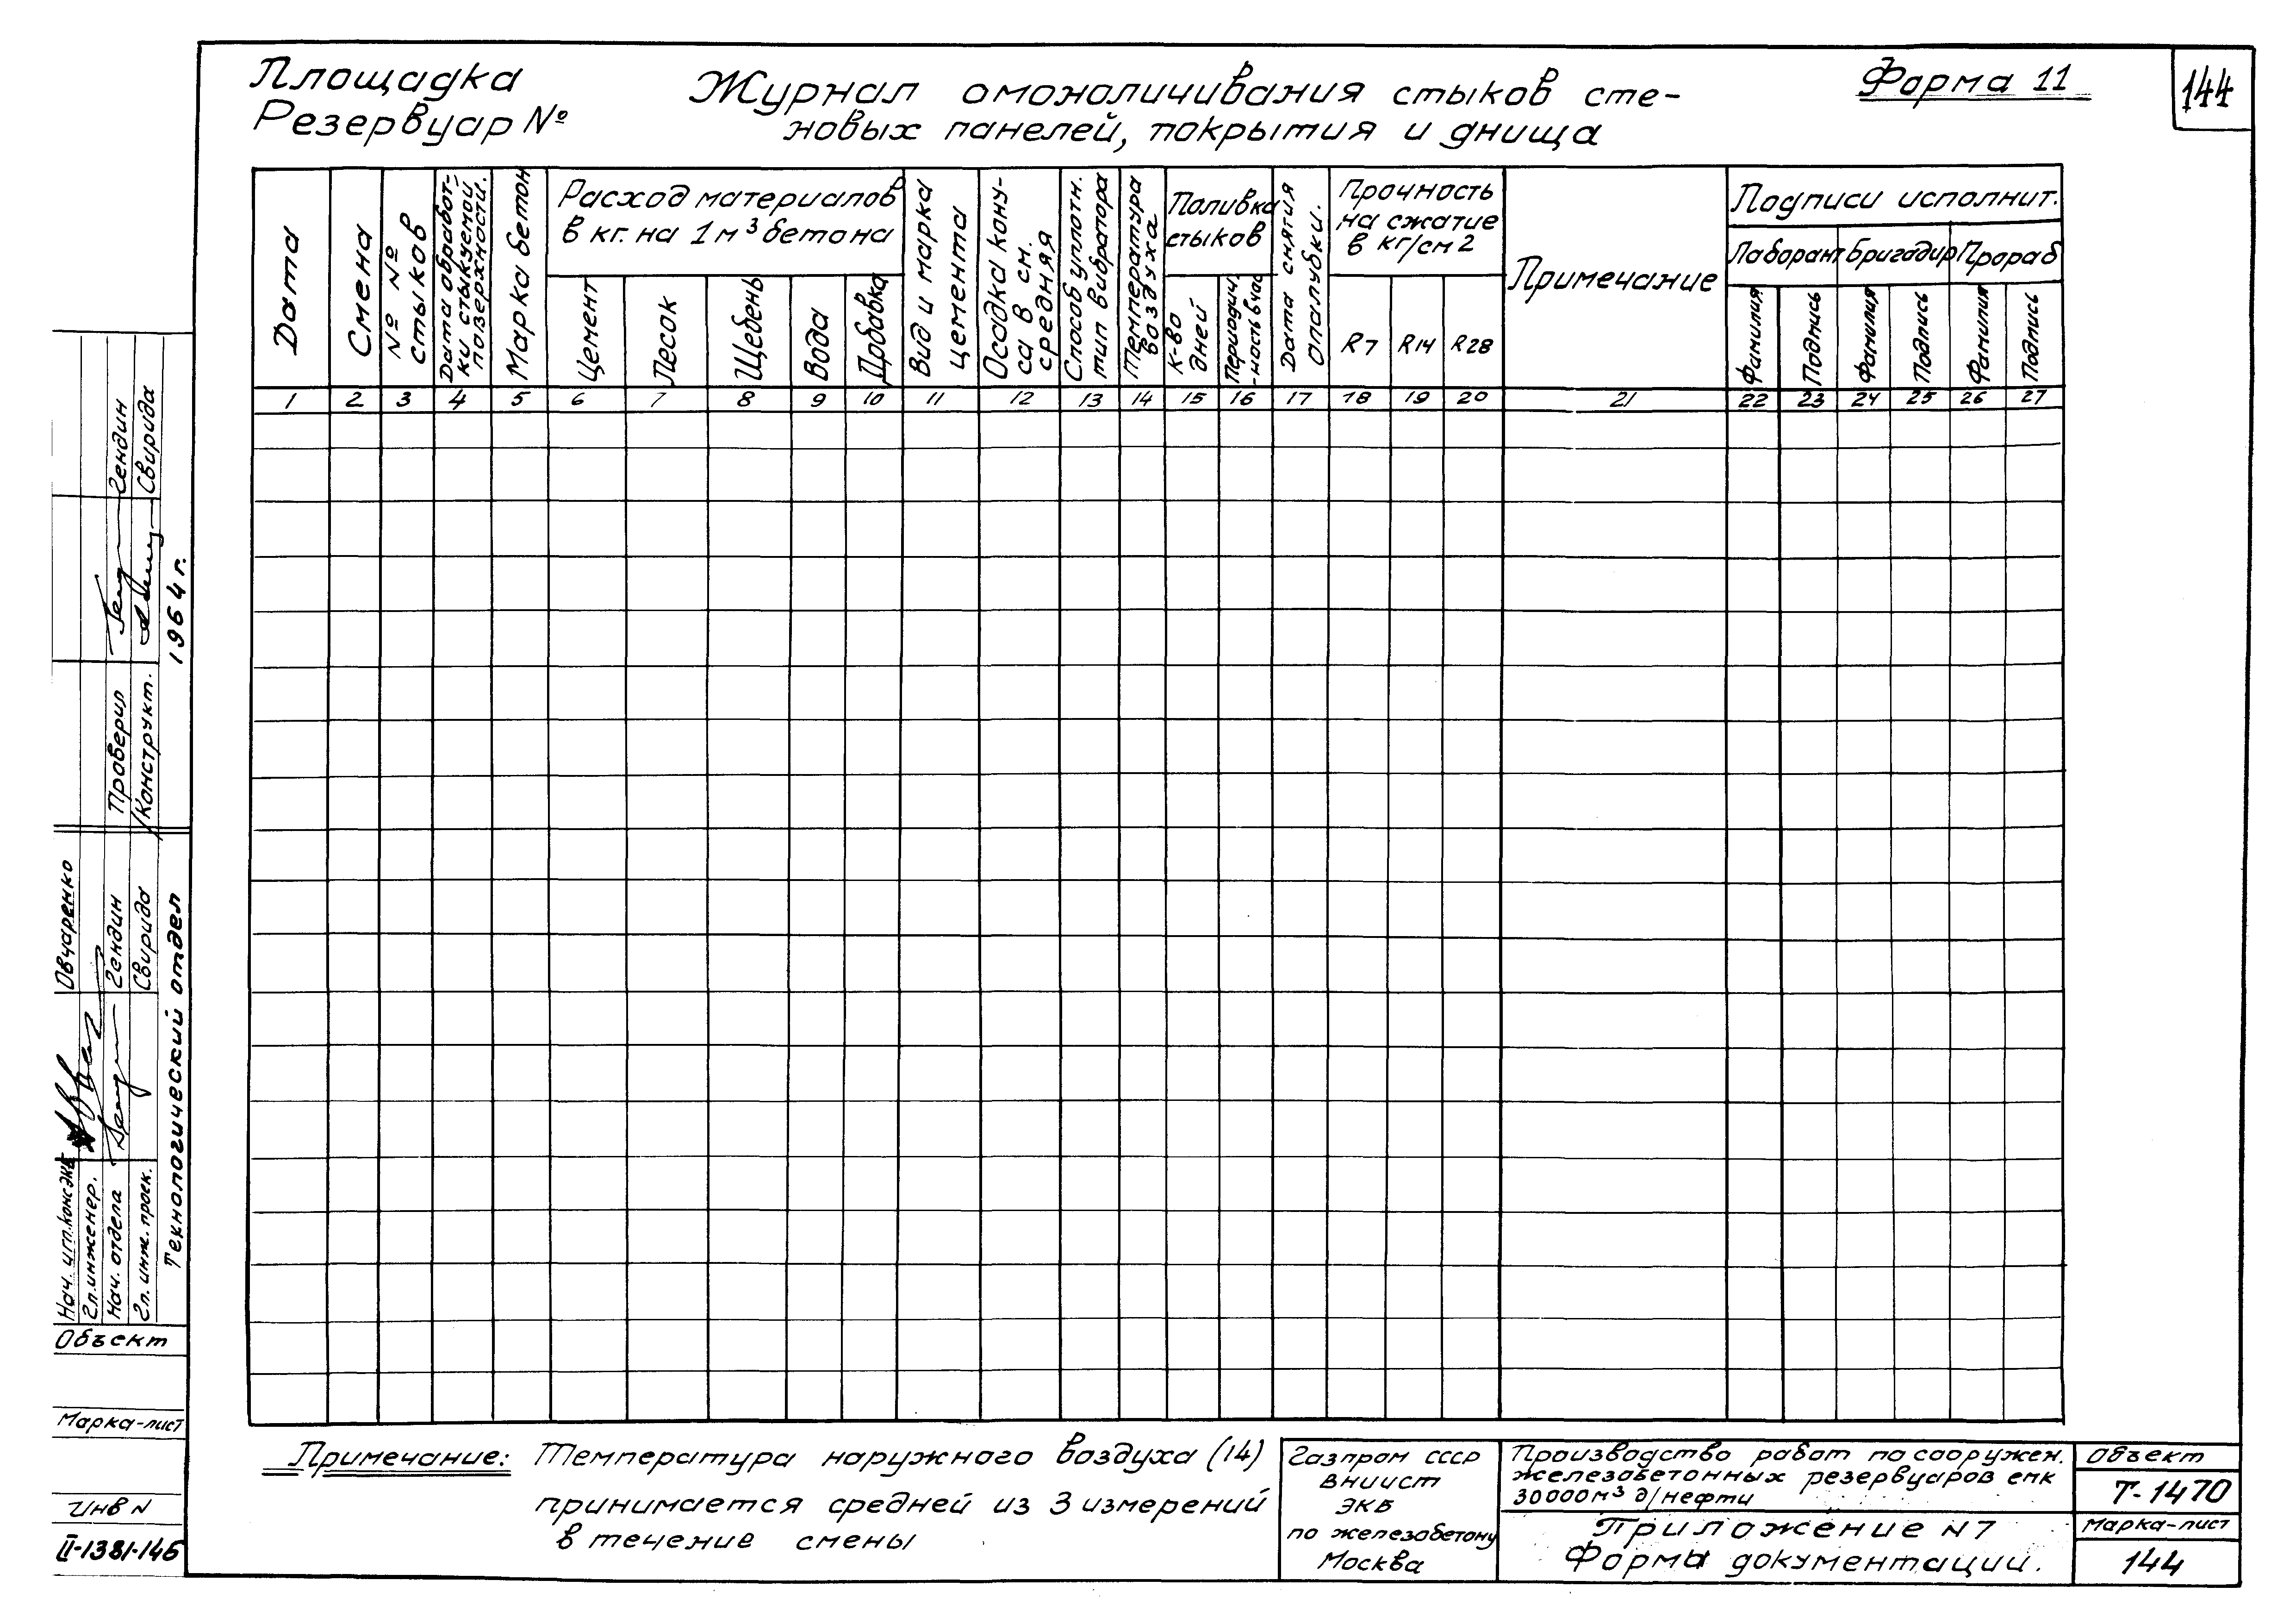 Площадка
Резервуар №
Журнал омоноличивания стыков сте-
новых панелей, покрытия и днища
Форма 11
144
Дата
Смена
№ №
стыков
Дата обработ-
ки стыкуемой
поверхности.
Марка бетон
Расход материалов
в кг. на 1 м³ бетона
Цемент
Песок
Щебень
Вода
Добавка
Вид и марка
цемента
Осадка кону-
са в см.
средняя
Способ уплотн.
тип вибратора
Температура
воздуха
Поливка
стыков
К-во
дней
Периодич.
-ность в час
Дата снятия
опалубки.
Прочность
на сжатие
в кг/см 2
R 7
R 14
R 28
Примечание
Подписи исполнит.
Лаборант
Бригадир
Прораб
Фамилия
Подпись
Фамилия
Подпись
Фамилия
Подпись
1 2 3 4 5 6 7 8 9 10 11 12 13 14 15 16 17 18 19 20 21 22 23 24 25 26 27
Примечание: Температура наружного воздуха (14)
принимается средней из 3 измерений
в течение смены
Газпром СССР
ВНИИСТ
ЭКБ
по железобетону
Москва
Производство работ по сооружен.
железобетонных резервуаров емк
30000 м³ д/нефти
Приложение N 7
Формы документации.
Объект
Т-1470
Марка-лист
144
Гендин
Свирида
Проверил
Конструкт.
1964 г.
Овчаренко
Гендин
Свирида
Гл. инженер.
Нач. отдела
Гл. инж. проек.
Технологический отдел
Объект
Марка-лист
Инв N
II-1381-145